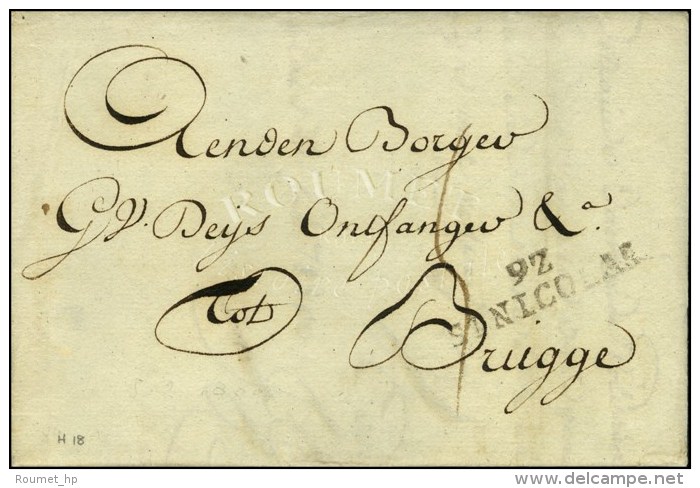 Aenden Borger
G V. Deys Ontfanger & a.
Tot Brugge
92
ST NICOLAS
H 18
Roumet_hp
delcampe.net